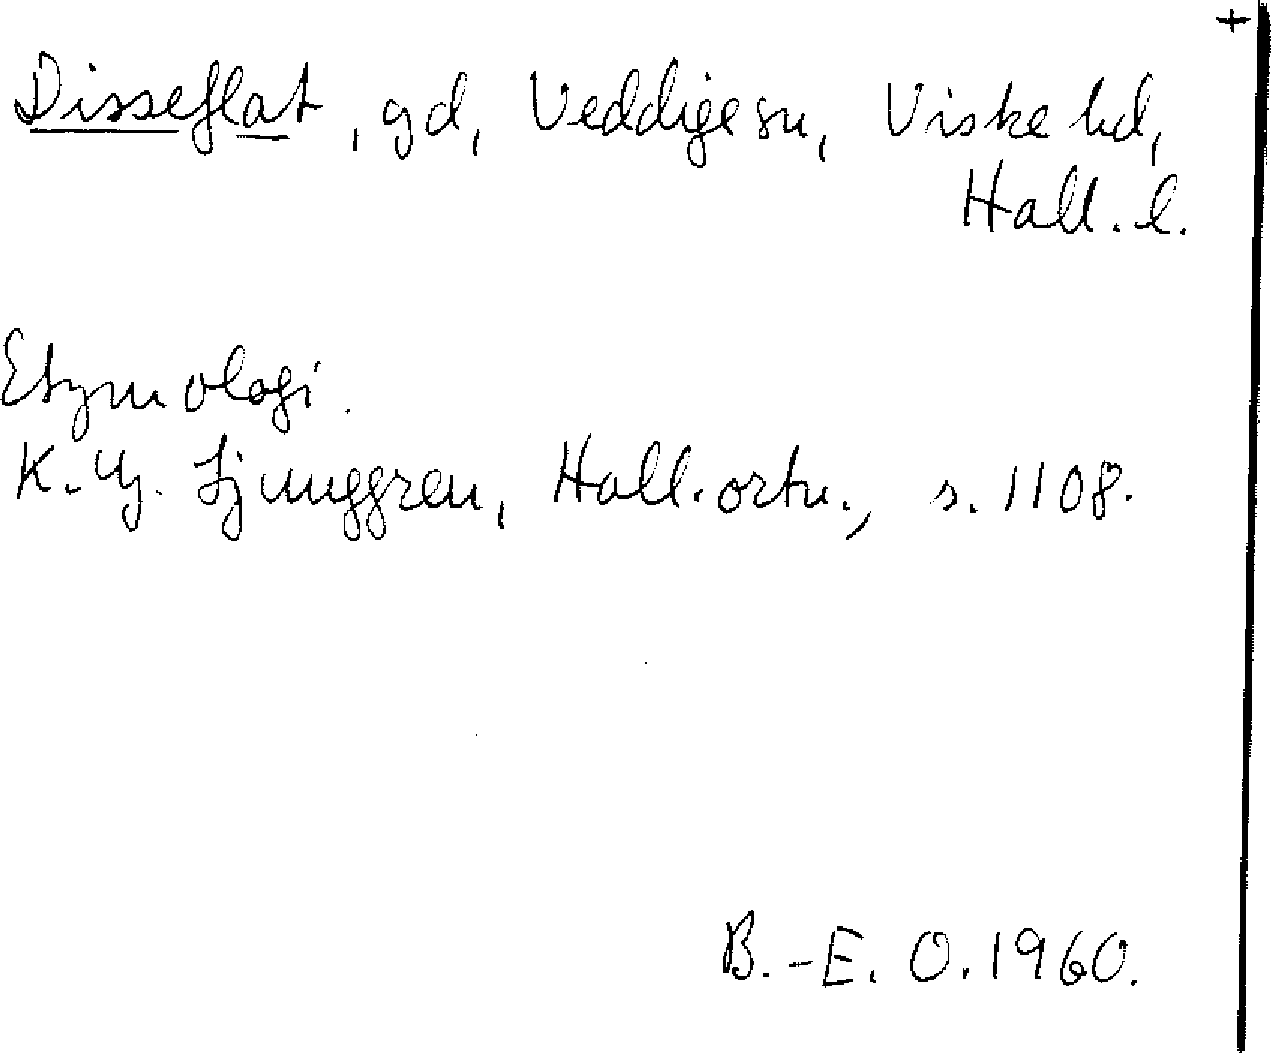 +
Disseflat, gd, Veddige sn, Viske hd,
Hall. l.
Etymologi.
K. G. Ljunggren, Hall. ortn., s. 1108.
B.-E. O. 1960.